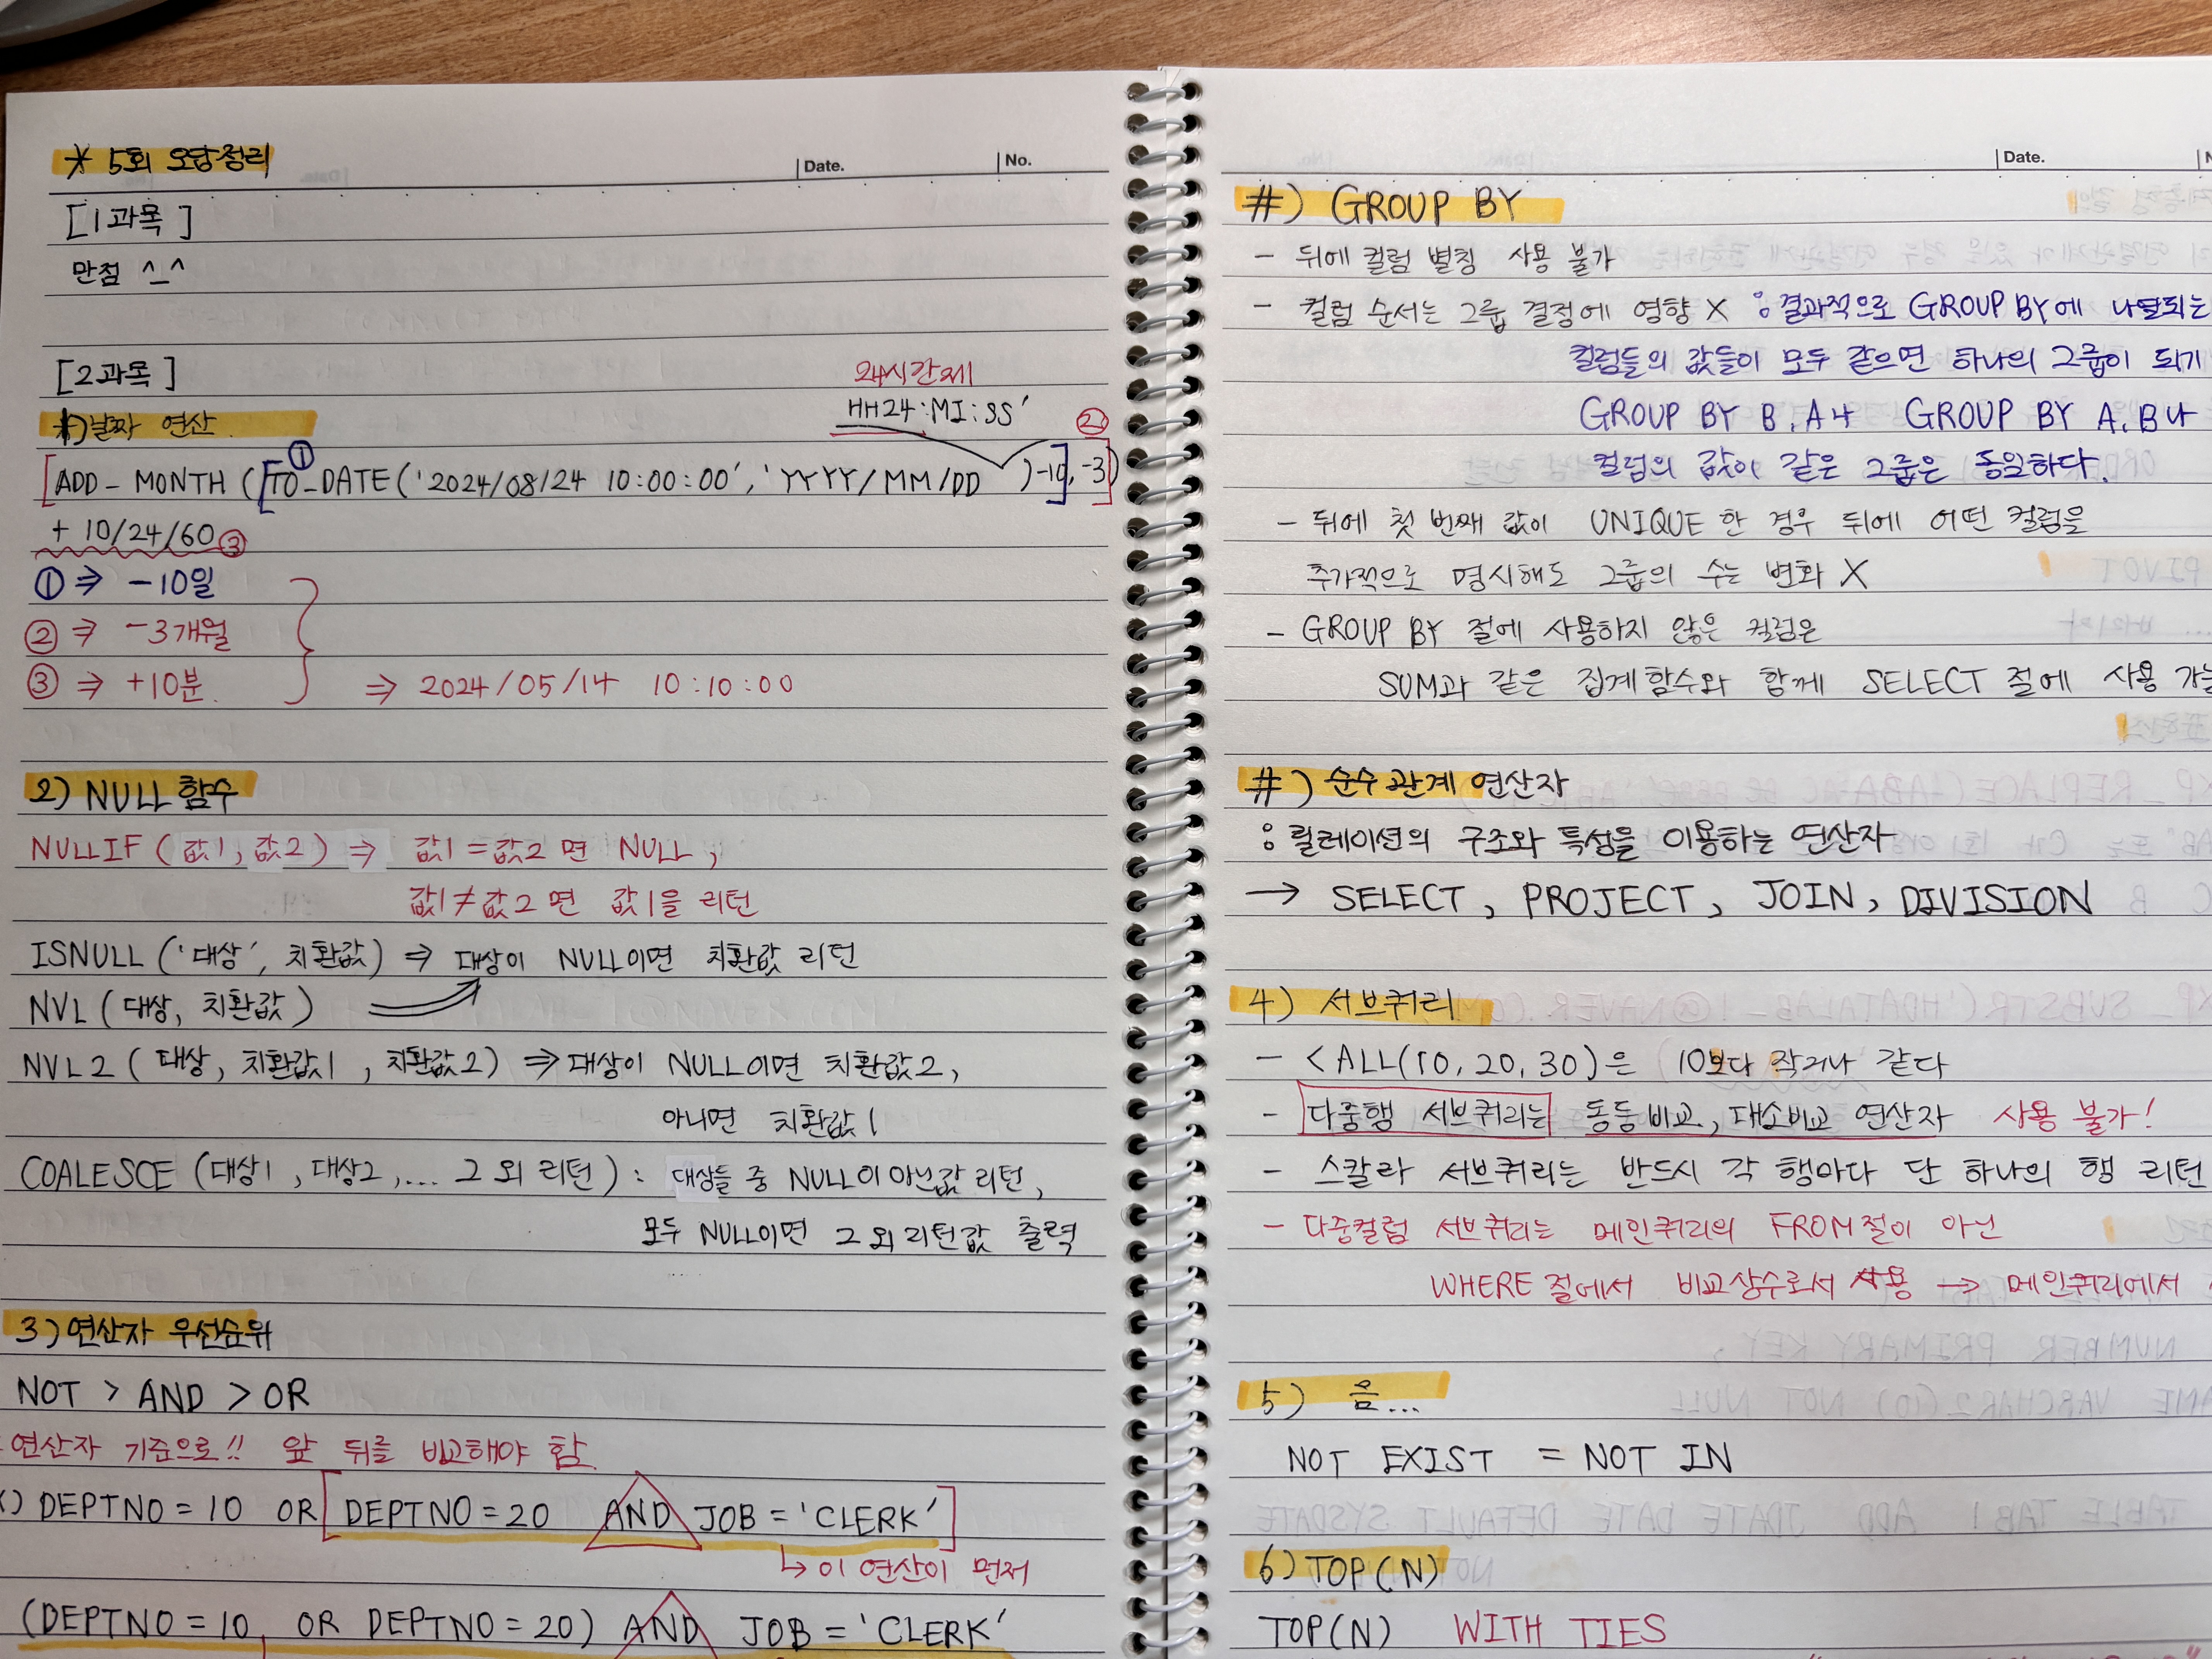 * 5회 오답정리
Date.
No.
[1과목]
만점 ^_^
[2과목]
24시간제
1) 날짜 연산
HH24:MI:SS'
②
①
[ADD_MONTH ([TO_DATE('2024/08/24 10:00:00', 'YYYY/MM/DD )-10], -3)]
+ 10/24/60 ③
① ⇒ -10일
② ⇒ -3개월
③ ⇒ +10분. ⇒ 2024/05/14 10:10:00
2) NULL 함수
NULLIF (값1, 값2) ⇒ 값1 = 값2 면 NULL,
값1 ≠ 값2 면 값1을 리턴
ISNULL ('대상', 치환값) ⇒ 대상이 NULL이면 치환값 리턴
NVL (대상, 치환값)
NVL2 (대상, 치환값1, 치환값2) ⇒ 대상이 NULL이면 치환값2,
아니면 치환값1
COALESCE (대상1, 대상2, ... 그 외 리턴) : 대상들 중 NULL이 아닌값 리턴,
모두 NULL이면 그 외 리턴값 출력
3) 연산자 우선순위
NOT > AND > OR
연산자 기준으로!! 앞 뒤를 비교해야 함.
) DEPTNO = 10 OR [DEPTNO = 20 AND JOB = 'CLERK']
↳ 이 연산이 먼저
(DEPTNO = 10 OR DEPTNO = 20) AND JOB = 'CLERK'
Date.
#) GROUP BY
- 뒤에 컬럼 별칭 사용 불가
- 컬럼 순서는 그룹 결정에 영향 X : 결과적으로 GROUP BY에 나열되는
컬럼들의 값들이 모두 같으면 하나의 그룹이 되기
GROUP BY B, A나 GROUP BY A, B나
컬럼의 값이 같은 그룹은 동일하다.
- 뒤에 첫 번째 값이 UNIQUE 한 경우 뒤에 어떤 컬럼을
추가적으로 명시해도 그룹의 수는 변화 X
- GROUP BY 절에 사용하지 않은 컬럼은
SUM과 같은 집계함수와 함께 SELECT 절에 사용 가능
#) 순수관계 연산자
: 릴레이션의 구조와 특성을 이용하는 연산자
→ SELECT, PROJECT, JOIN, DIVISION
4) 서브쿼리
- < ALL(10, 20, 30)은 10보다 작거나 같다
- 다중행 서브쿼리는 동등비교, 대소비교 연산자 사용 불가!
- 스칼라 서브쿼리는 반드시 각 행마다 단 하나의 행 리턴
- 다중컬럼 서브쿼리는 메인쿼리의 FROM절이 아닌
WHERE 절에서 비교상수로서 사용 → 메인쿼리에서
5) 음...
NOT EXIST = NOT IN
6) TOP(N)
TOP(N) WITH TIES